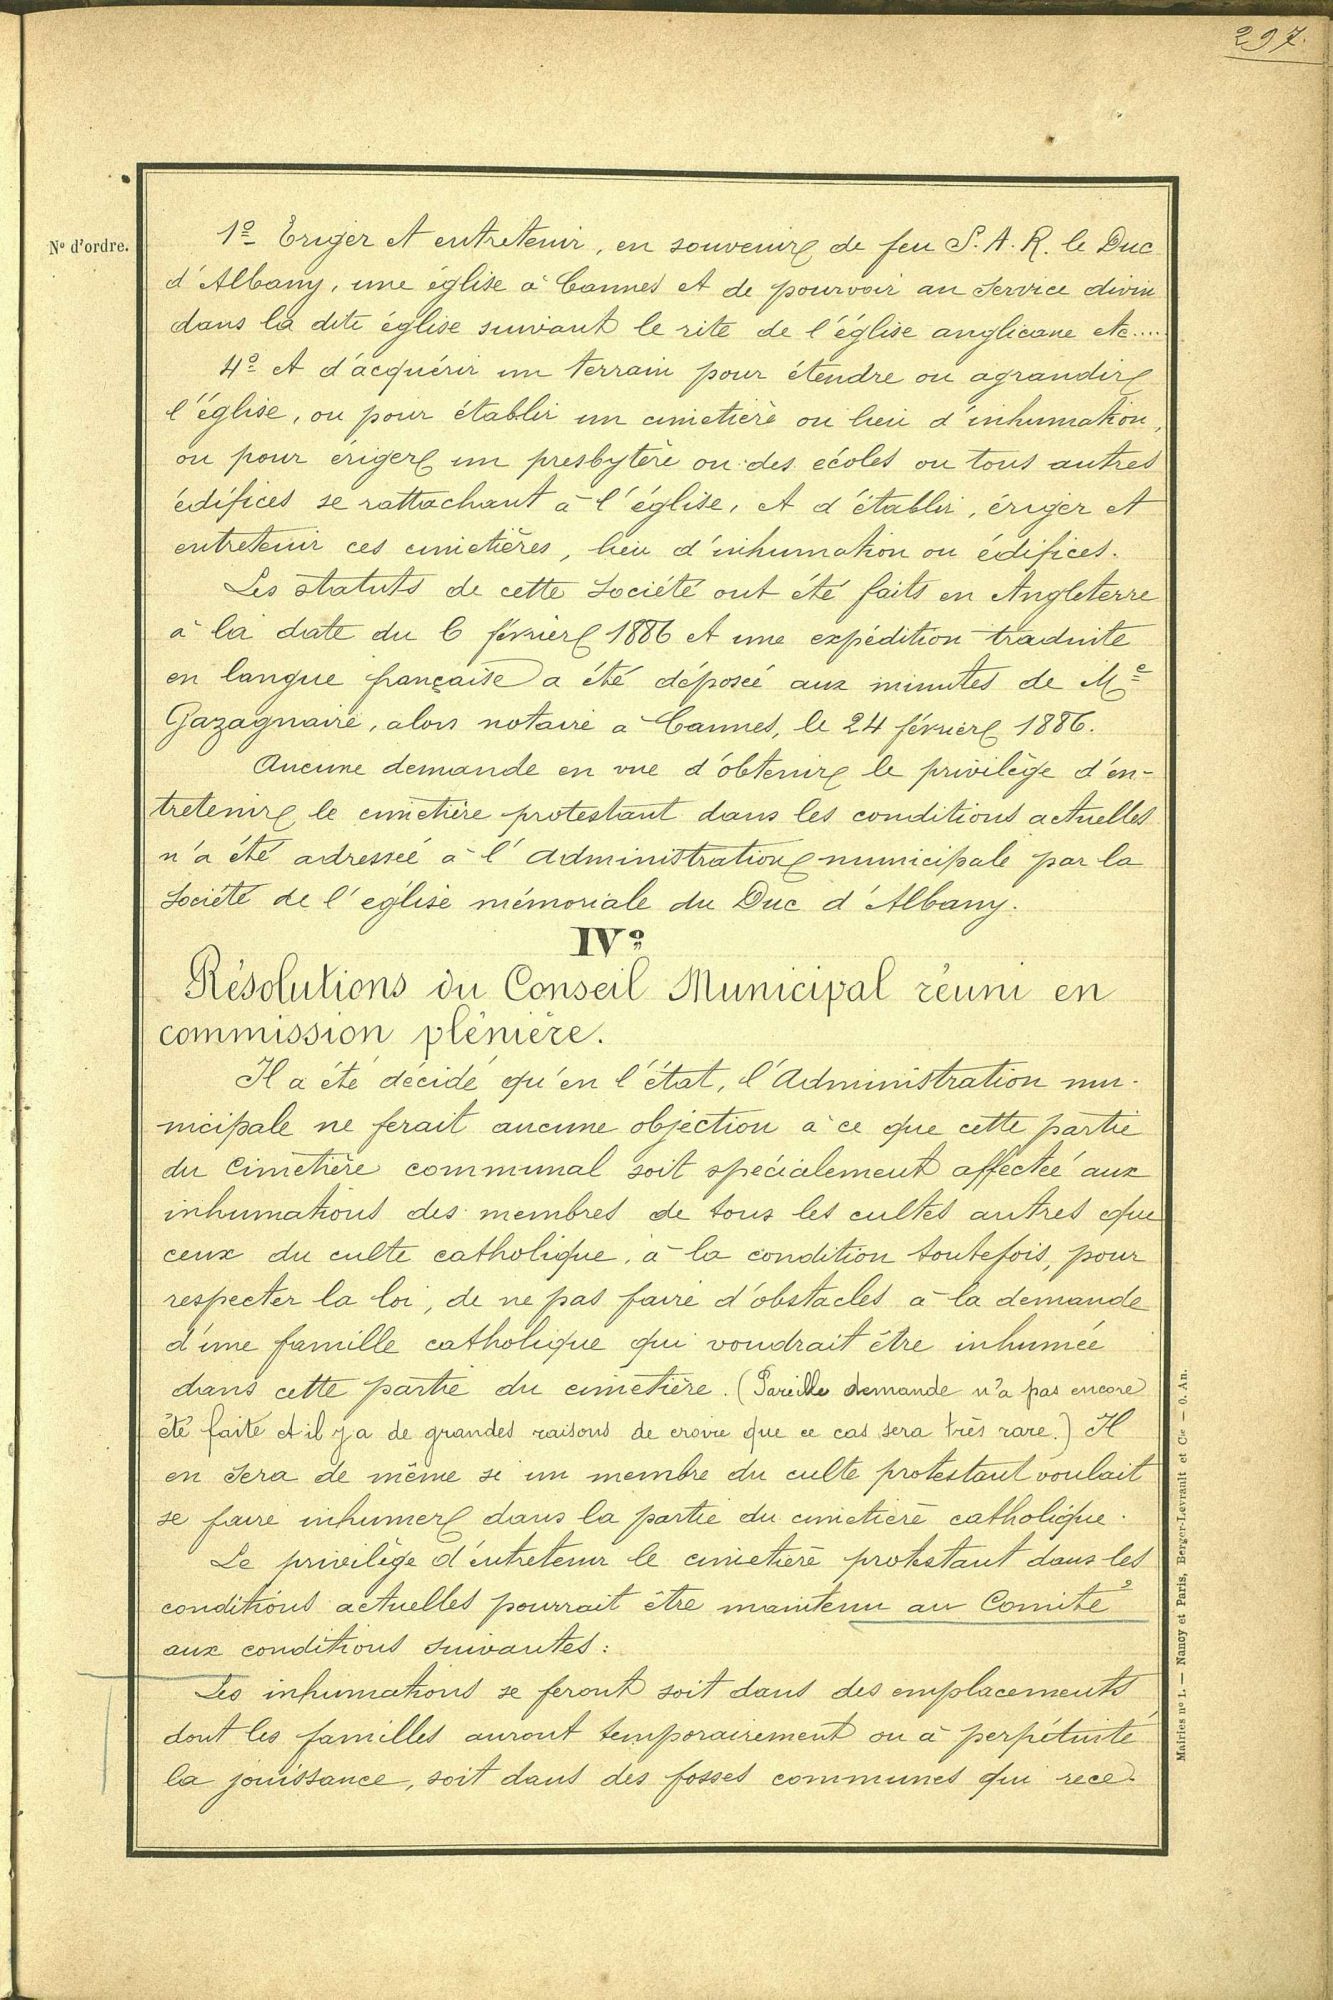 297.
N° d'ordre.
1° Eriger et entretenir, en souvenir de feu S. A. R. le Duc
d'Albany, une église à Cannes et de pourvoir au service divin
dans la dite église suivant le rite de l'église anglicane etc....
4° et d'acquérir un terrain pour étendre ou agrandir
l'église, ou pour établir un cimetière ou lieu d'inhumation,
ou pour ériger un presbytère ou des écoles ou tous autres
édifices se rattachant à l'église, et d'établir, ériger et
entretenir ces cimetières, lieu d'inhumation ou édifices.
Les statuts de cette Société ont été faits en Angleterre
à la date du 6 février 1886 et une expédition traduite
en langue française a été déposée aux minutes de Me
Gazagnaire, alors notaire à Cannes, le 24 février 1886.
Aucune demande en vue d'obtenir le privilège d'en-
tretenir le cimetière protestant dans les conditions actuelles
n'a été adressée à l'Administration municipale par la
Société de l'église mémoriale du Duc d'Albany.
IV°
Résolutions du Conseil Municipal réuni en
commission plénière.
Il a été décidé qu'en l'état, l'Administration mu-
nicipale ne ferait aucune objection à ce que cette partie
du Cimetière communal soit spécialement affectée aux
inhumations des membres de tous les cultes autres que
ceux du culte catholique, à la condition toutefois, pour
respecter la loi, de ne pas faire d'obstacles à la demande
d'une famille catholique qui voudrait être inhumée
dans cette partie du cimetière. (Pareille demande n'a pas encore
été faite et il y a de grandes raisons de croire que ce cas sera très rare.) Il
en sera de même si un membre du culte protestant voulait
se faire inhumer dans la partie du cimetière catholique.
Le privilège d'entretenir le cimetière protestant dans les
conditions actuelles pourrait être maintenu au Comité
aux conditions suivantes:
Les inhumations se feront soit dans des emplacements
dont les familles auront temporairement ou à perpétuité
la jouissance, soit dans des fosses communes qui rece-
Mairies n° 1. — Nancy et Paris, Berger-Levrault et Cie — O. An.